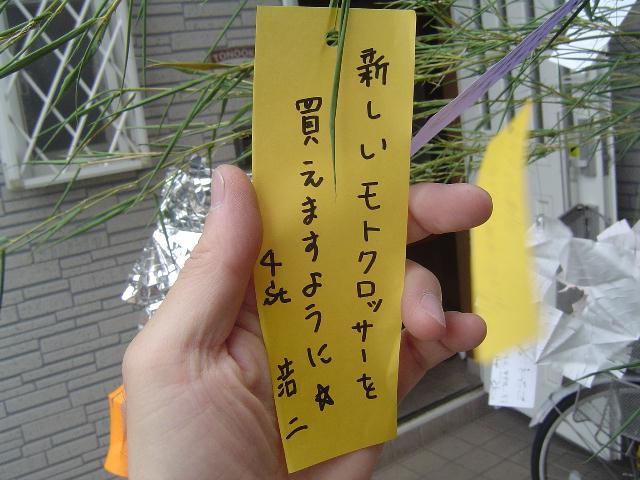 新しいモトクロッサーを
買えますように☆
4st 浩二